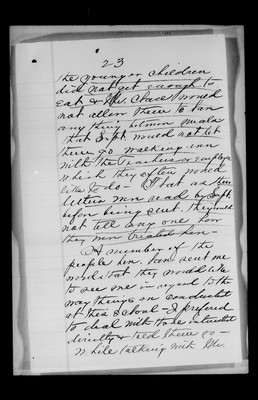 23
the younger children
did not get enough to
eat & Mr. Chase would
not allow them to have
any thing between meals
that Supt would not let
them go walking
with the Teachers or employe
which they often would
like to do - That as their
letters were read by Supt
before being sent, they would
not tell any one how
they were treated here -
A member of the
people here have sent me
word that they would like
to see me in regard to the
way things are conducted
at their School - I preferred
to deal with those
directly & told them so -
While talking with Mr.